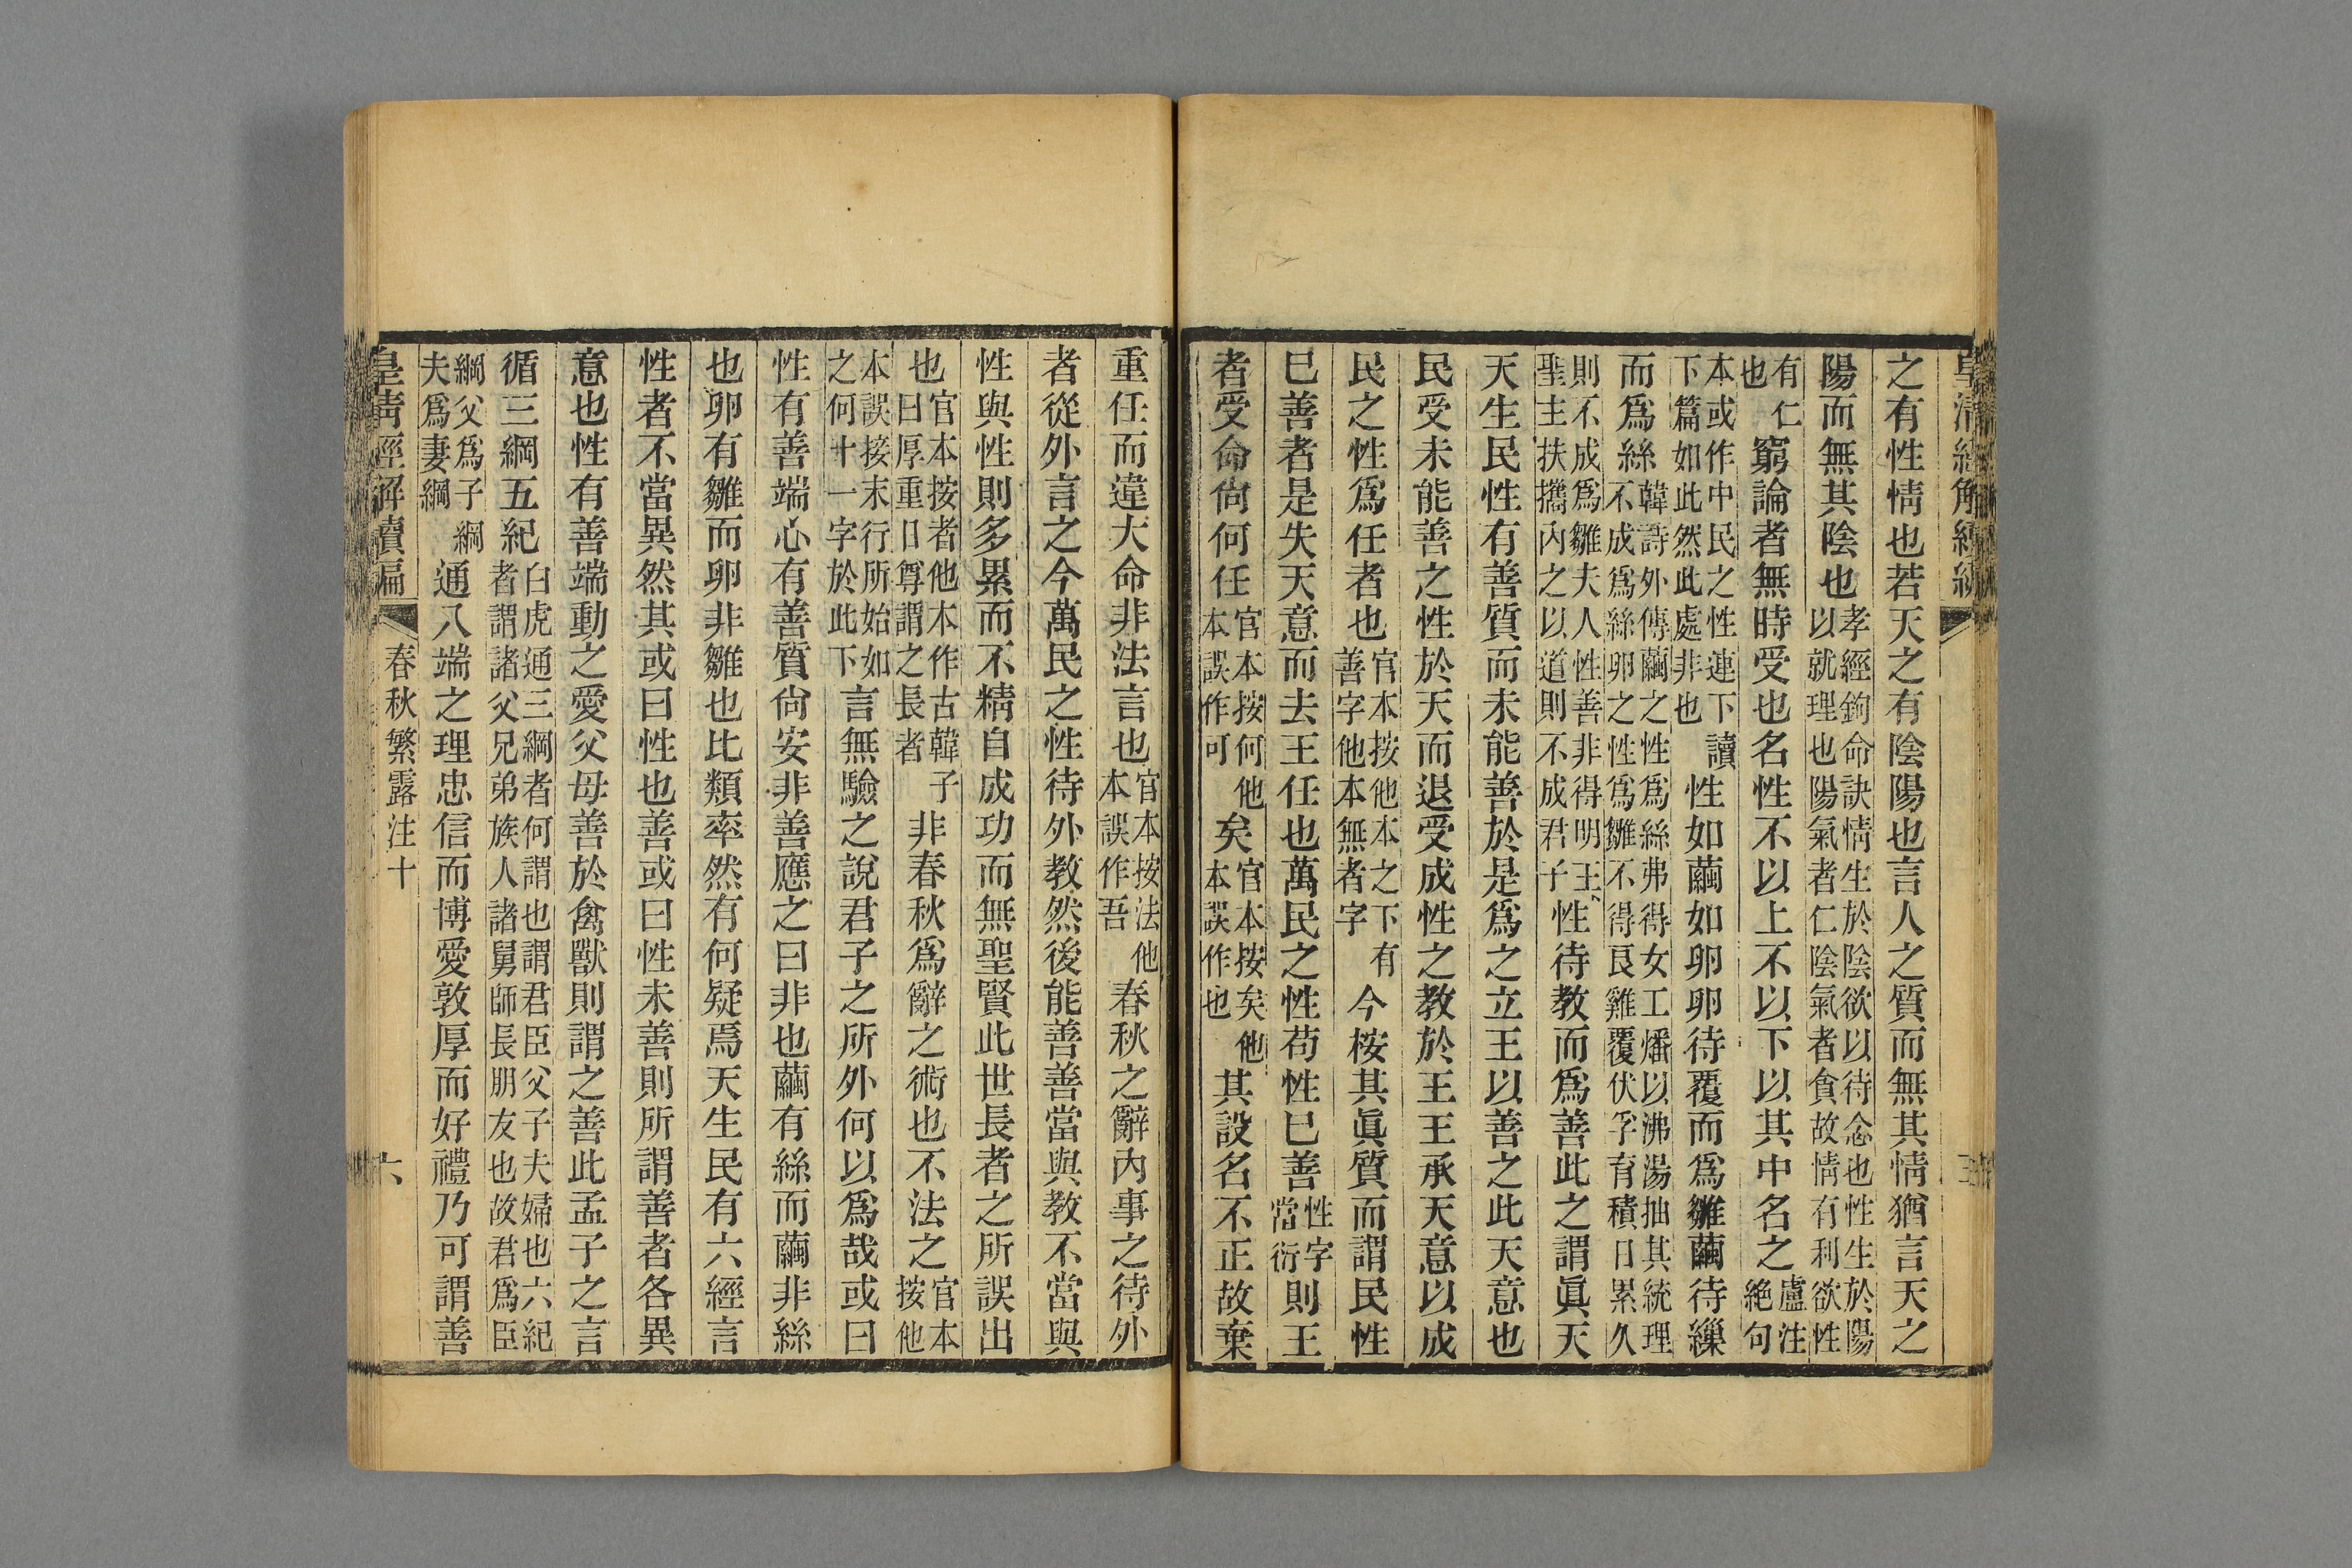 之有性情也若天之有陰陽也言人之質而無其情猶言天之
陽而無其陰也孝經鉤命訣情生於陰欲以待念也性生於陽以就理也陽氣者仁陰氣者貪故情有利欲性
有仁也窮論者無時受也名性不以上不以下以其中名之盧注絕句
本或作中民之性連下讀下篇如此然此處非也性如繭如卵卵待覆而爲雛繭待繅
而爲絲韓詩外傳繭之性爲絲弗得女工燔以沸湯抽其統理不成爲絲卵之性爲雛不得良雞覆伏孚育積日累久
則不成爲雛夫人性善非得明王聖主扶攜內之以道則不成君子性待教而爲善此之謂眞天
天生民性有善質而未能善於是爲之立王以善之此天意也
民受未能善之性於天而退受成性之教於王王承天意以成
民之性爲任者也官本按他本之下有善字他本無者字今桉其眞質而謂民性
巳善者是失天意而去王任也萬民之性苟性巳善性字當衍則王
者受命尙何任官本按何他本誤作可矣官本按矣他本誤作也其設名不正故棄
重任而違大命非法言也官本按法他本誤作吾春秋之辭內事之待外
者從外言之今萬民之性待外教然後能善善當與教不當與
性與性則多累而不精自成功而無聖賢此世長者之所誤出
也官本按者他本作古韓子曰厚重日尊謂之長者非春秋爲辭之術也不法之官本按他
本誤接末行所始如之何十一字於此下言無驗之說君子之所外何以爲哉或曰
性有善端心有善質尙安非善應之曰非也繭有絲而繭非絲
也卵有雛而卵非雛也比類率然有何疑焉天生民有六經言
性者不當異然其或曰性也善或曰性未善則所謂善者各異
意也性有善端動之愛父母善於禽獸則謂之善此孟子之言
循三綱五紀白虎通三綱者何謂也謂君臣父子夫婦也六紀者謂諸父兄弟族人諸舅師長朋友也故君爲臣
綱父爲子綱夫爲妻綱通八端之理忠信而博愛敦厚而好禮乃可謂善
皇淸經解續編 春秋繁露注十 六